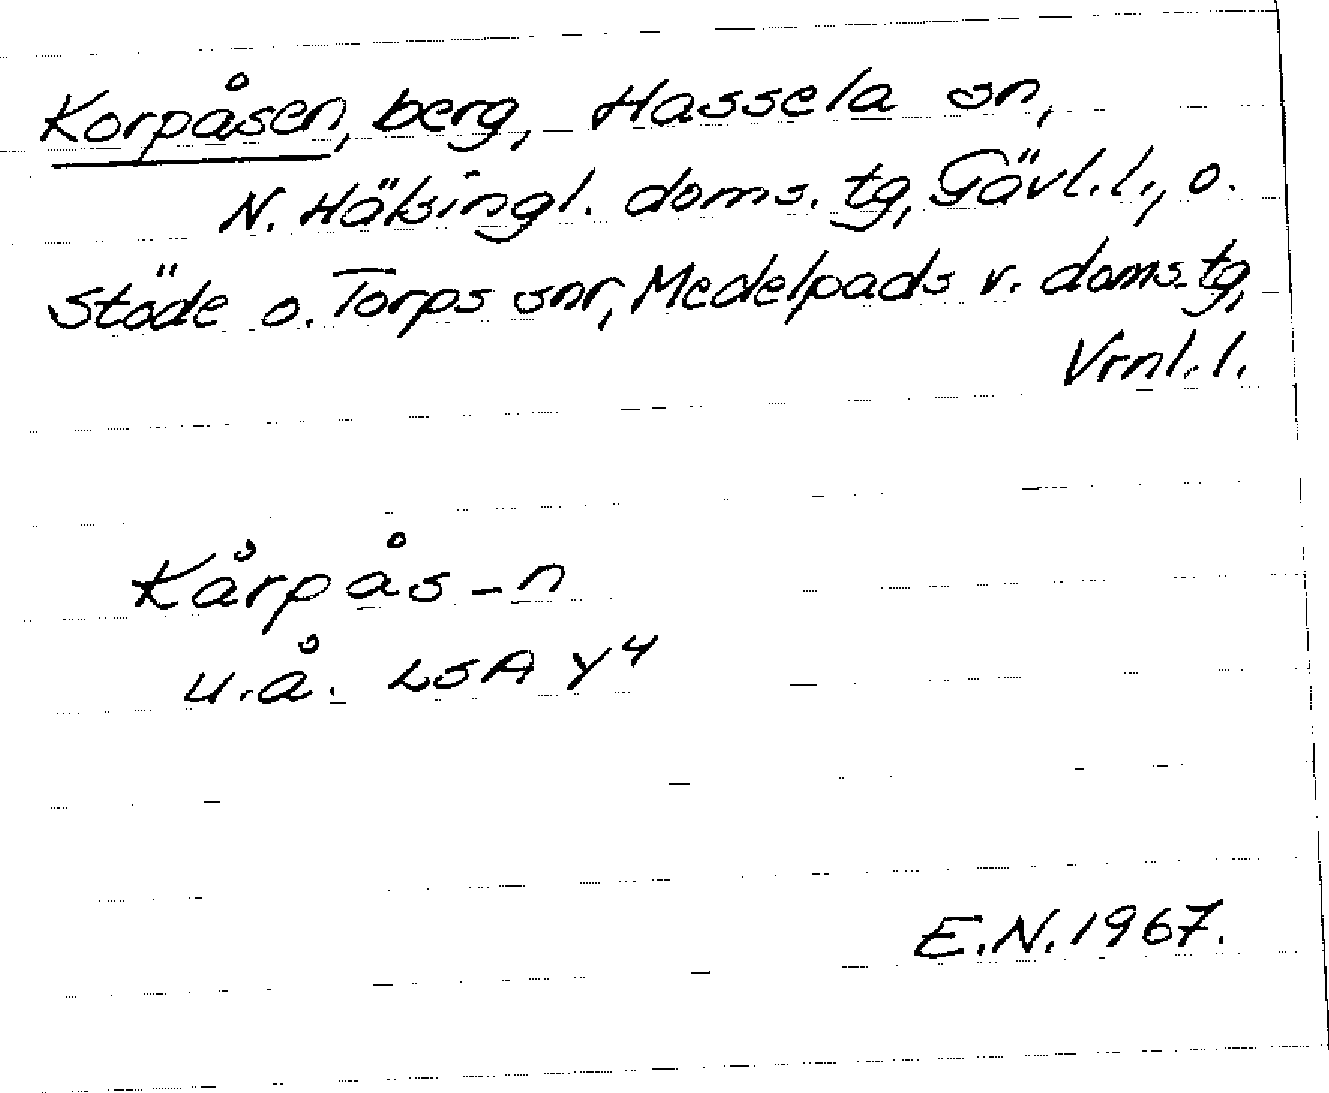 Korpåsen, berg, Hassela sn,
N. Hälsingl. doms. tg, Gävl.l., o.
Stöde o. Torps snr, Medelpads v. doms. tg,
Vrnl. l.
Kårpås-n
u.å. LSA Y4
E.N. 1967.